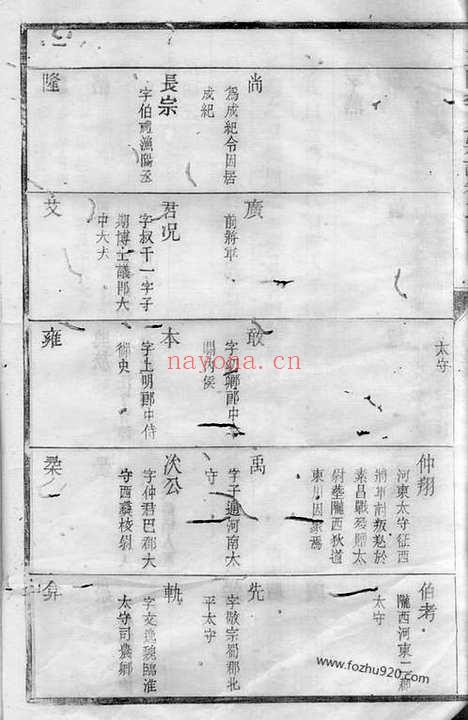 尚
為成紀令因居
成紀
長宗
字伯禮漁陽丞
隆
廣
前將軍
君况
字叔干一字子
期博士議郎大
中大夫
艾
太守
敢
字幼卿郎中
關內侯
本
字上明郎中侍
御史
雍
仲翔
河東太守征西
將軍討叛羌於
素昌戰歿贈太
尉葬隴西狄道
東川因家焉
禹
字子通河南太
守
次公
字仲君巴郡太
守西夷校尉
伯考
隴西河東二郡
太守
先
字敬宗蜀郡北
平太守
軌
字文逸魏臨淮
太守司農卿
弇
nayona.cn
www.fozhu920.com